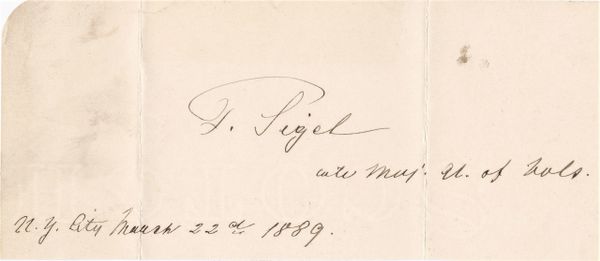 F. Sigel
late Maj. G. of Vols.
N. Y. City March 22d 1889.